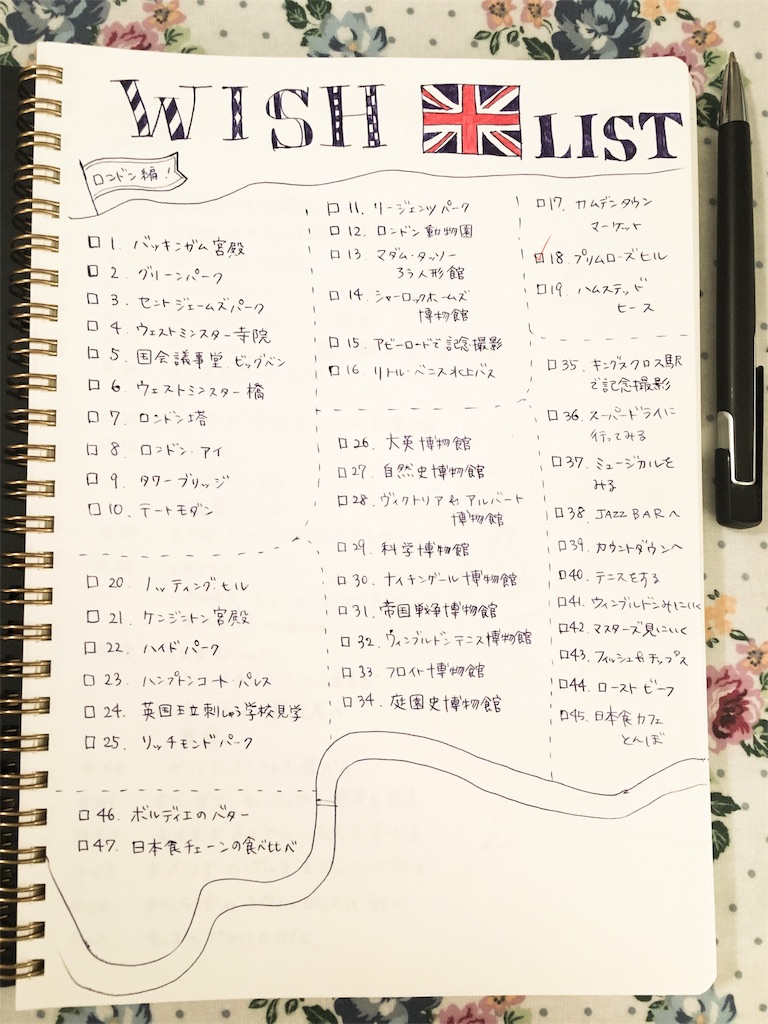 WISH LIST
ロンドン編!
□ 1. バッキンガム宮殿
□ 2. グリーンパーク
□ 3. セントジェームズパーク
□ 4. ウェストミンスター寺院
□ 5. 国会議事堂.ビッグベン
□ 6. ウェストミンスター橋
□ 7. ロンドン塔
□ 8. ロンドン・アイ
□ 9. タワーブリッジ
□ 10. テートモダン
□ 11. リージェンツパーク
□ 12. ロンドン動物園
□ 13. マダム・タッソー
ろう人形館
□ 14. シャーロックホームズ
博物館
□ 15. アビーロードで記念撮影
□ 16. リトル・ベニス水上バス
□ 17. カムデンタウン
マーケット
☑ 18. プリムローズヒル
□ 19. ハムステッド
ヒース
□ 20. ノッティング・ヒル
□ 21. ケンジントン宮殿
□ 22. ハイドパーク
□ 23. ハンプトンコート・パレス
□ 24. 英国王立刺しゅう学校見学
□ 25. リッチモンドパーク
□ 26. 大英博物館
□ 27. 自然史博物館
□ 28. ヴィクトリア&アルバート
博物館
□ 29. 科学博物館
□ 30. ナイチンゲール博物館
□ 31. 帝国戦争博物館
□ 32. ウィンブルドンテニス博物館
□ 33. フロイト博物館
□ 34. 庭園史博物館
□ 35. キングスクロス駅
で記念撮影
□ 36. スーパードライに
行ってみる
□ 37. ミュージカルを
みる
□ 38. JAZZ BARへ
□ 39. カウントダウンへ
□ 40. テニスをする
□ 41. ウィンブルドンみにいく
□ 42. マスターズ見にいく
□ 43. フィッシュ&チップス
□ 44. ローストビーフ
□ 45. 日本食カフェ
とんぼ
□ 46. ボルディエのバター
□ 47. 日本食チェーンの食べ比べ